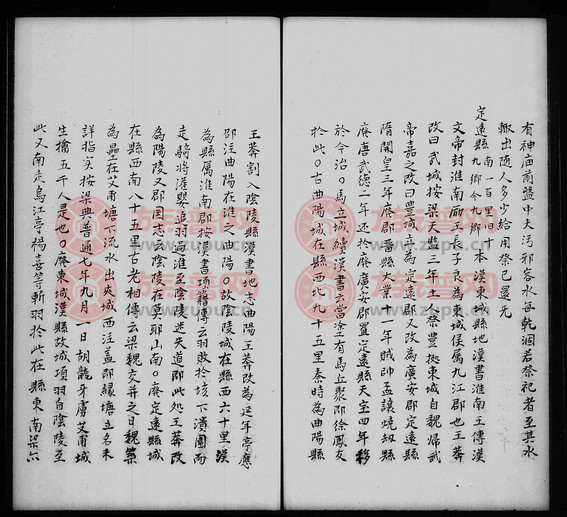 有神庙前盤中大汚邪客水每乾涸若祭祀者至其水
輙出随人多少給用祭已還元
定遠縣南一百里旧十本漢東城縣地漢書淮南王傳漢
九鄉今九鄉
文帝封淮南厲王長子良為東城侯属九江郡也王莽
改曰武城按梁天監三年土人蔡豊㨿東城自魏帰武
帝嘉之改曰豊城立為定遠郡又改為廣安郡定遠縣
隋開皇三年廢郡留縣大業十一年賊帅孟讓燒刼縣
廢唐武德二年还於廢廣安郡置定遠縣天宝四年移
於今治〇馬立城續漢書云當塗有馬丘聚即徐鳳友
於此〇古曲陽城在縣西北九十五里秦時為曲陽縣
王莽割入陰陵縣漢書地志曲陽王莽改為延年亭應
邵注曲陽在淮之曲陽〇故陰陵城在縣西六十里漢
為縣属淮南郡按漢書項籍傳云羽敗於垓下潰圍而
走騎將灌嬰追羽過淮至陰陵迷失道即此処王莽改
為陽陵又郡国志云陰陵在莫耶山南〇廢定遠縣
在縣西南八十五里古老相傳云梁魏交兵之日魏築
為壘在艾甫塘下流水出夾城西注盖即緣塘立名未
詳指实按梁典普通七年九月一日胡龍牙虜艾甫城
生擒五千人是也〇廢東城漢縣故城項羽自陰陵至
此又南走烏江亭楊喜等斬羽於此在縣東南梁六